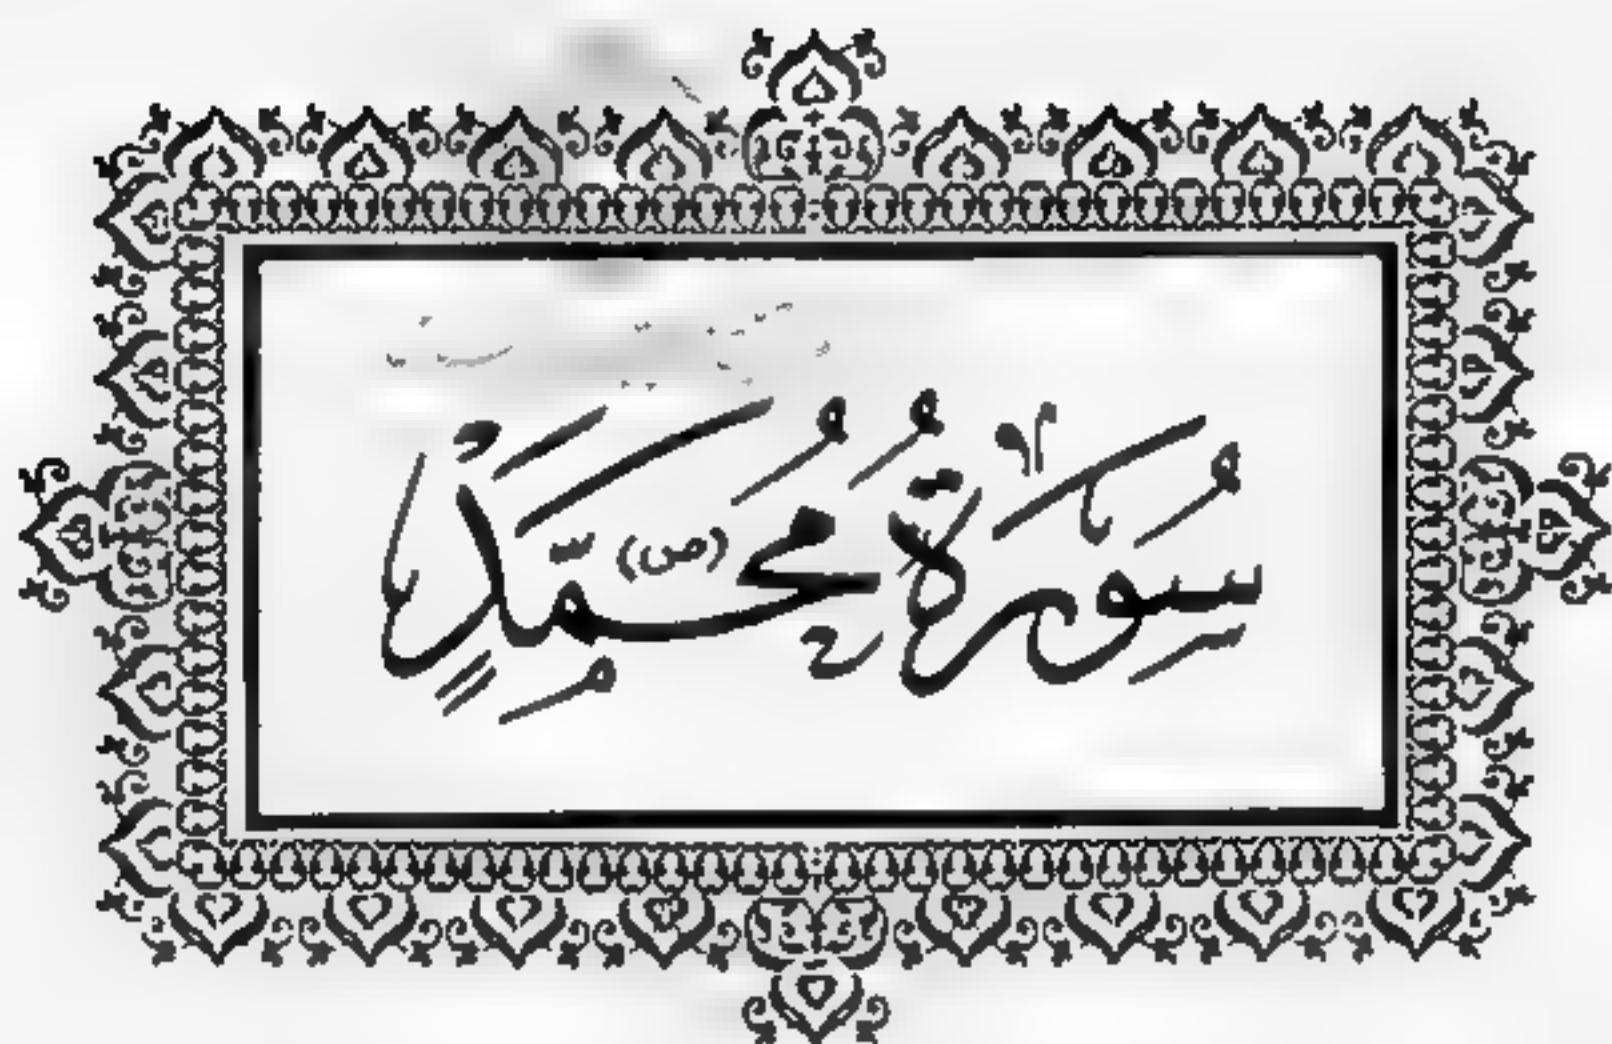 سُورَةُ مُحَمَّدٍ (ص)